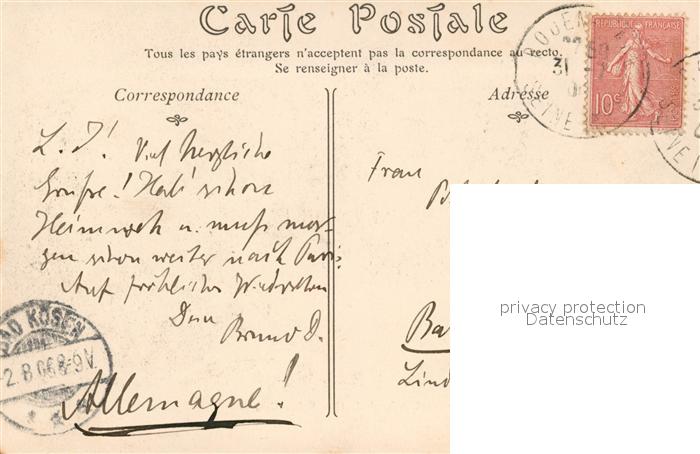 Carte Postale
Tous les pays étrangers n'acceptent pas la correspondance au recto.
Se renseigner à la poste.
Correspondance
Adresse
ROUEN
31
SEINE
REPUBLIQUE FRANÇAISE
10c
L. T.! Viel herzliche
Grüße! Hab' schon
Heimweh u. muß mor-
gen schon weiter nach Paris.
Auf fröhliches Wiedersehen
Dein
Bruno D.
Allemagne!
BAD KÖSEN
2.8.06.8-9V.
Frau
Ba
Lind
privacy protection
Datenschutz